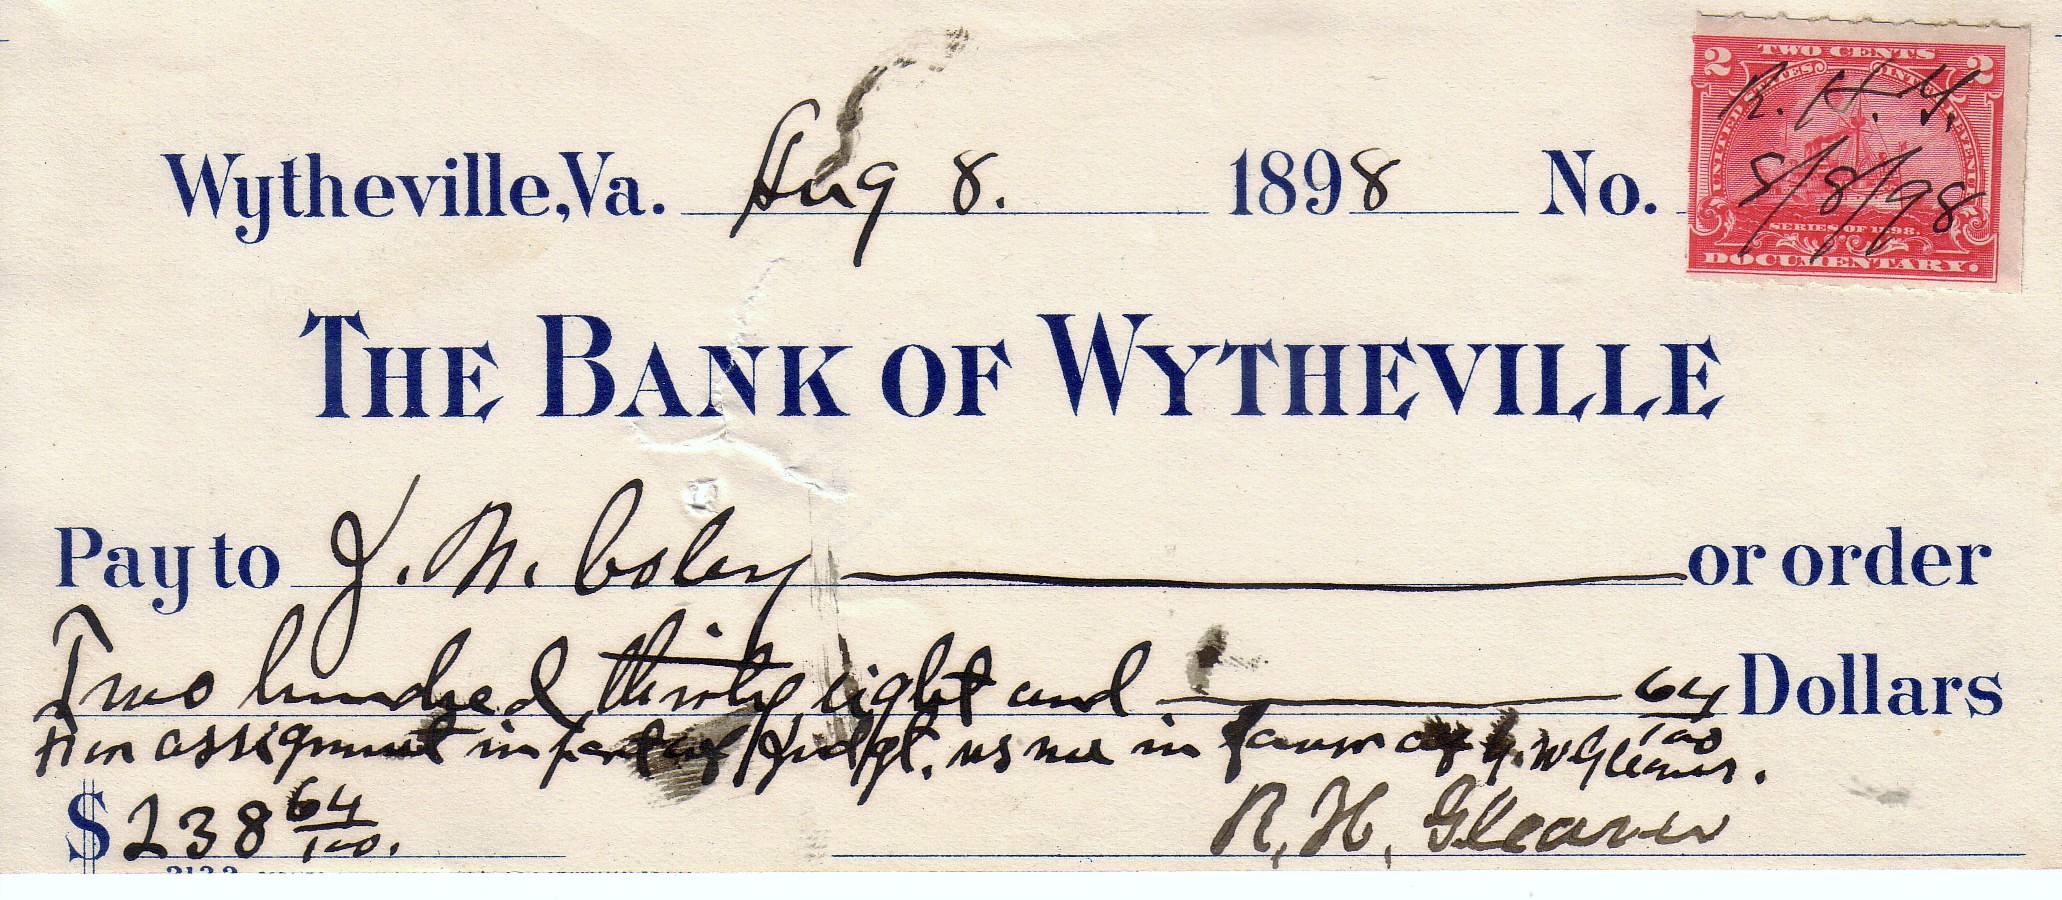 2 TWO CENTS 2
UNITED STATES INTER. REVENUE
R. H. G.
8/8/98
SERIES OF 1898.
DOCUMENTARY.
Wytheville, Va. Aug 8. 1898 No.
THE BANK OF WYTHEVILLE
Pay to J. N. Coley or order
Two hundred thirty eight and 64/100 Dollars
For assignment in part of Judgt. vs me in favor of G. W Gleaves.
$ 238 64/100.
R. H. Gleaves